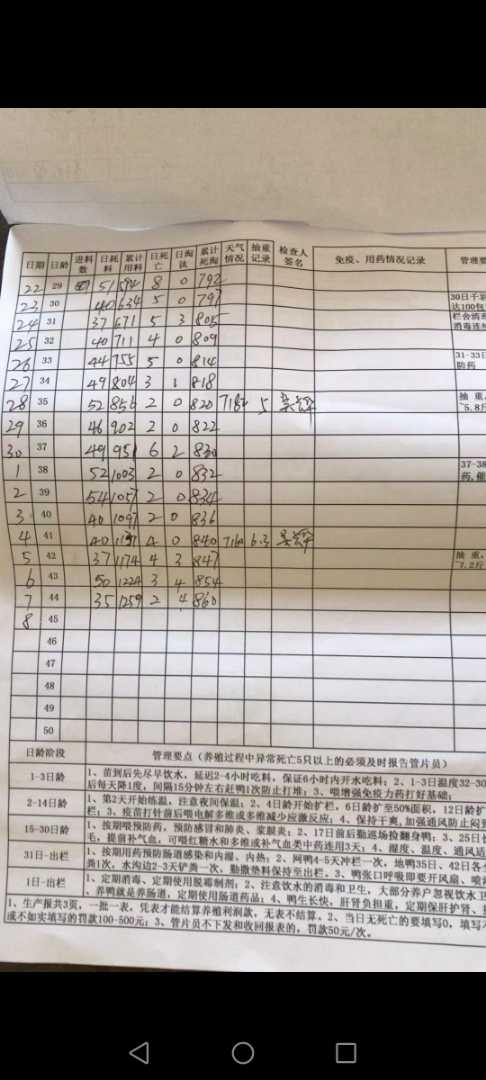 日期 日龄 进料数 日耗料 累计用料 日死亡 日淘汰 累计死淘 天气情况 抽重记录 检查人签名 免疫、用药情况记录 管理要
22 29 51 594 8 0 792
23 30 40 634 5 0 797 30日子
24 31 37 671 5 3 805 达100包
25 32 40 711 4 0 809
26 33 44 755 5 0 814 31-33日 防药
27 34 49 804 3 1 818
28 35 52 856 2 0 820 7182 5 抽重, ~5.8斤
29 36 46 902 2 0 822
30 37 49 951 6 2 830
1 38 52 1003 2 0 832 37-38 药,催
2 39 54 1057 2 0 834
3 40 40 1097 2 0 836
4 41 40 1137 4 0 840 7160 6.3 抽重,
5 42 37 1174 4 3 847 ~7.2斤
6 43 50 1224 3 4 854
7 44 35 1259 2 4 860
8 45
46
47
48
49
50
日龄阶段 管理要点(养殖过程中异常死亡5只以上的必须及时报告管片员)
1-3日龄 1、苗到后先尽早饮水,延迟2-4小时吃料,保证6小时内开水吃料;2、1-3日温度32-30
后每天降1度,间隔15分钟左右赶鸭1次防止打堆;3、喂增强免疫力药打好基础;
2-14日龄 1、第2天开始炼温,注意夜间保温;2、4日龄开始扩栏,6日龄扩至50%面积,12日龄扩
栏;3、疫苗打针前后喂电解多维或多维减少应激反应;4、保持干爽,加强通风防止闷
15-30日龄 1、按期喂预防药,预防感冒和肺炎、浆膜炎;2、17日前后勤巡场捡翻身鸭;3、25日
毛,提前补气血,可喂红糖水和多维或补气血类中药连用3天;4、湿度、温度、通风适
31日-出栏 1、按期用药预防肠道感染和内湿、内热;2、网鸭4-5天冲栏一次,地鸭35日、42日各
粪1次,水沟边2-3天铲粪一次,勤撒垫料保持至出栏。3、鸭张口呼吸即要开风扇、喷
1日-出栏 1、定期消毒、定期使用脱霉制剂;2、注意饮水的消毒和卫生,大部分养户忽视饮水
,养鸭就是养肠道,定期使用肠道药品;4、鸭生长快,肝肾负担重,定期保肝护肾、
1、生产报共3页,一批一表,凭表才能结算养殖利润款,无表不结算。2、当日无死亡的要填写0,填写不
或不如实填写的罚款100-500元;3、管片员不下发和收回报表的,罚款50元/次。